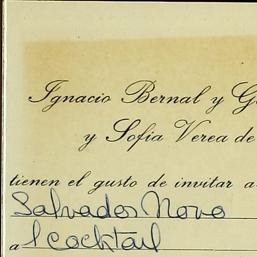 Ignacio Bernal y G
y Sofía Verea de
tienen el gusto de invitar a
Salvador Novo
al cocktail